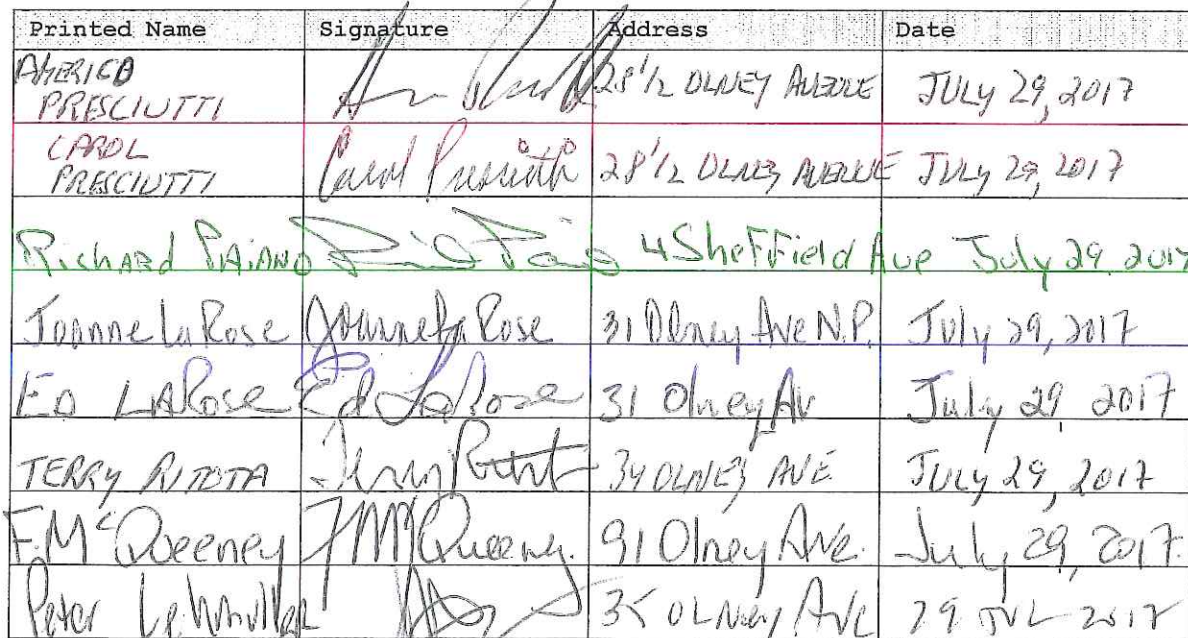 Printed Name Signature Address Date
AMERICO
PRESCIUTTI 28 1/2 OLNEY AVENUE JULY 29, 2017
CAROL
PRESCIUTTI Carol Presciutti 28 1/2 OLNEY AVENUE JULY 29, 2017
Richard PAiANO 4 Sheffield Ave July 29, 2017
Joanne LaRose Joanne La Rose 31 Olney Ave N.P. July 29, 2017
ED LaRose Ed LaRose 31 Olney Av July 29, 2017
TERRY RITOTA 34 OLNEY AVE. JULY 29, 2017
F. McQueeney F McQueeney. 91 Olney Ave. July 29, 2017.
Peter 35 OLNEY AVE 29 JUL 2017